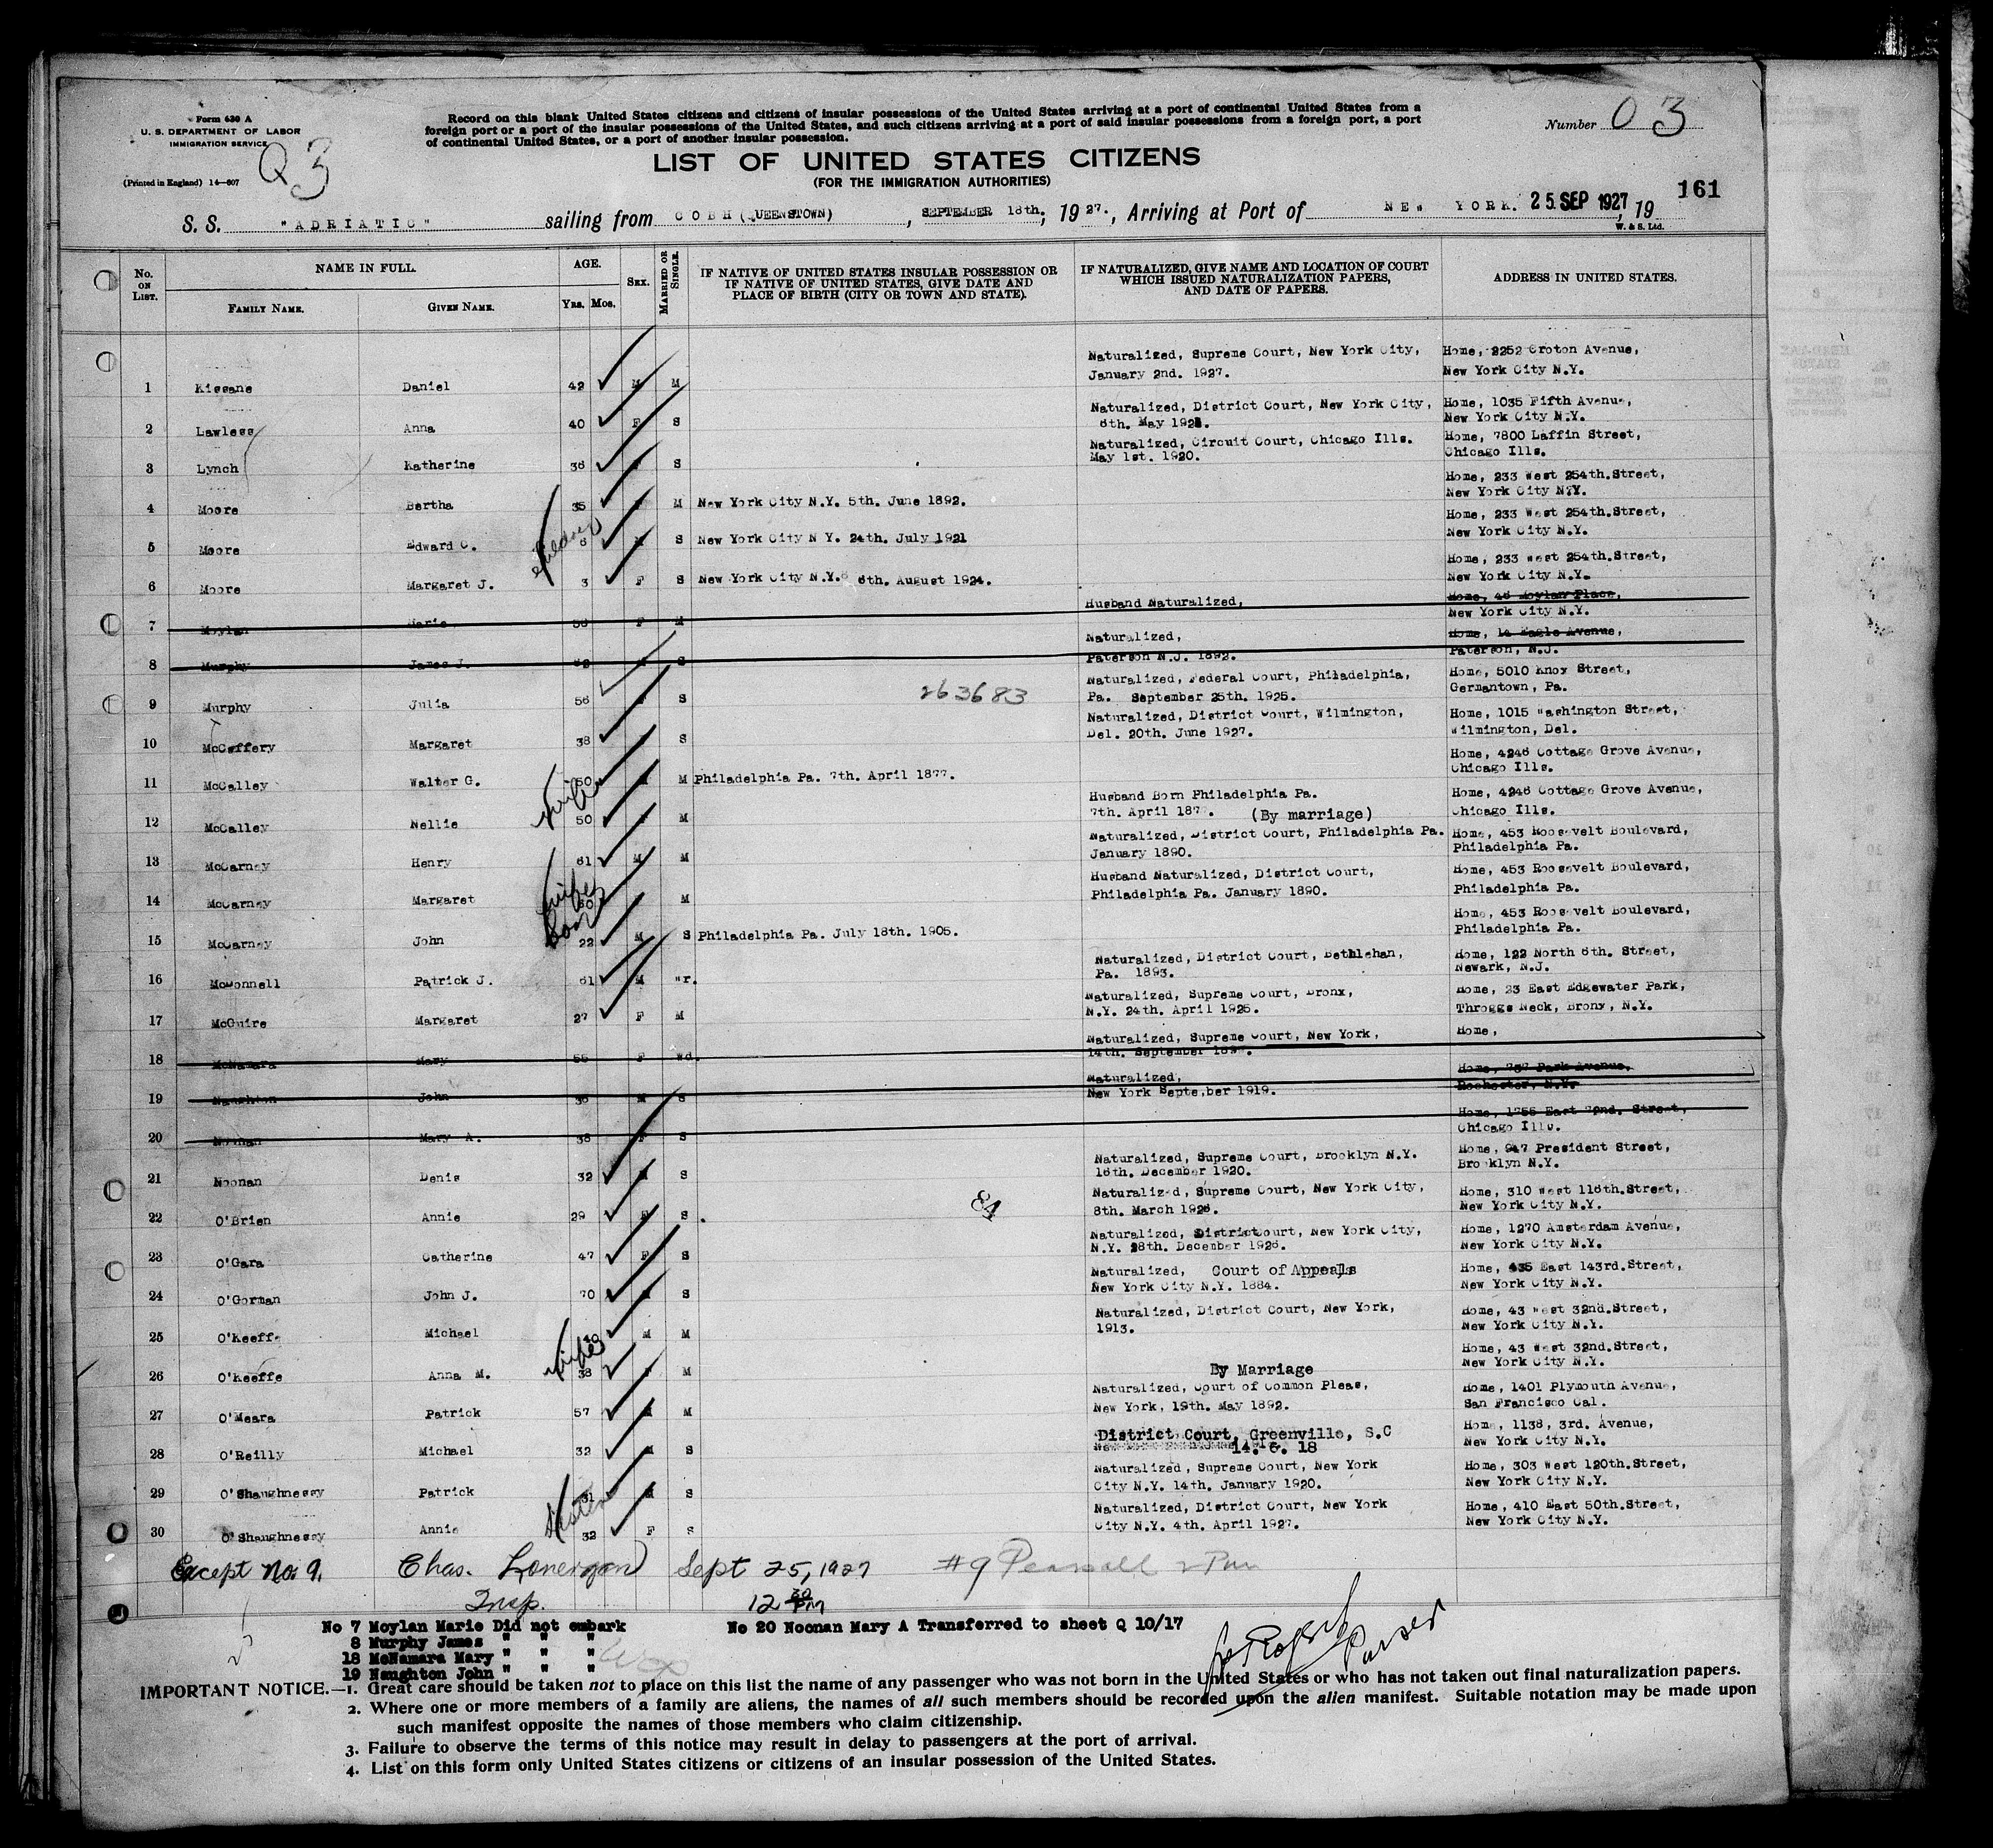 Form 630 A
U. S. DEPARTMENT OF LABOR
IMMIGRATION SERVICE
Q3
(Printed in England) 14—607
Record on this blank United States citizens and citizens of insular possessions of the United States arriving at a port of continental United States from a
foreign port or a port of the insular possessions of the United States, and such citizens arriving at a port of said insular possessions from a foreign port, a port
of continental United States, or a port of another insular possession.
Number 03
LIST OF UNITED STATES CITIZENS
(FOR THE IMMIGRATION AUTHORITIES)
161
S. S. "ADRIATIC" sailing from COBH (QUEENSTOWN), SEPTEMBER 18th; 1927., Arriving at Port of NEW YORK. 25 SEP 1927, 19
W. & S. Ltd.
No. ON LIST. NAME IN FULL. AGE. SEX. MARRIED OR SINGLE. IF NATIVE OF UNITED STATES INSULAR POSSESSION OR IF NATIVE OF UNITED STATES, GIVE DATE AND PLACE OF BIRTH (CITY OR TOWN AND STATE). IF NATURALIZED, GIVE NAME AND LOCATION OF COURT WHICH ISSUED NATURALIZATION PAPERS, AND DATE OF PAPERS. ADDRESS IN UNITED STATES.
FAMILY NAME. GIVEN NAME. YRS. MOS.
Naturalized, Supreme Court, New York City, Home, 2252 Croton Avenue,
1 Kissane Daniel 42 M M January 2nd. 1927. New York City N.Y.
Naturalized, District Court, New York City, Home, 1035 Fifth Avenue,
2 Lawless Anna 40 F S 8th. May 192 New York City N.Y.
Naturalized, Circuit Court, Chicago Ills. Home, 7800 Laffin Street,
3 Lynch Katherine 36 S May 1st. 1920. Chicago Ills.
Home, 233 West 254th.Street,
4 Moore Bertha 35 M New York City N.Y. 5th. June 1892. New York City N.Y.
Home, 233 West 254th.Street,
5 Moore Edward C. 6 M S New York City N Y. 24th. July 1921 New York City N.Y.
children
Home, 233 West 254th.Street,
6 Moore Margaret J. 3 F S New York City N.Y. 6th. August 1924. New York City N.Y.
Husband Naturalized, Home, 46 Moylan Place,
7 Moylan Marie F M New York City N.Y.
Naturalized, Home, 14 Eagle Avenue,
8 Murphy James J. S Paterson N.J. 1892. Paterson, N.J.
Naturalized, Federal Court, Philadelphia, Home, 5010 Knox Street,
9 Murphy Julia 56 S 263683 Pa. September 25th. 1925. Germantown, Pa.
Naturalized, District Court, Wilmington, Home, 1015 Washington Street,
10 McCaffery Margaret 38 S Del. 20th. June 1927. Wilmington, Del.
Home, 4246 Cottage Grove Avenue,
11 McCalley Walter G. 50 M Philadelphia Pa. 7th. April 1877. Chicago Ills.
wife
Husband Born Philadelphia Pa. Home, 4246 Cottage Grove Avenue,
12 McCalley Nellie 50 M 7th. April 187 . (By marriage) Chicago Ills.
Naturalized, District Court, Philadelphia Pa. Home, 453 Roosevelt Boulevard,
13 McCarney Henry 61 M M January 1890. Philadelphia Pa.
wife
Husband Naturalized, District Court, Home, 453 Roosevelt Boulevard,
14 McCarney Margaret M Philadelphia Pa. January 1890. Philadelphia Pa.
Son
Home, 453 Roosevelt Boulevard,
15 McCarney John 22 M S Philadelphia Pa. July 18th. 1905. Philadelphia Pa.
Naturalized, District Court, Bethlehan, Home, 122 North 6th. Street,
16 McDonnell Patrick J. 61 M Wr. Pa. 1893. Newark, N.J.
Naturalized, Supreme Court, Bronx, Home, 23 East Edgewater Park,
17 McGuire Margaret 27 F M N.Y. 24th. April 1925. Throggs Neck, Bronx, N.Y.
Naturalized, Supreme Court, New York, Home,
18 McNamara Mary 55 F Wd. 14th. September 189 .
Naturalized, Home, 737 Park Avenue,
19 Naughton John 36 M S New York Septe,ber 1919. Rochester, N.Y.
Home, 1755 East 72nd. Street,
20 Noonan Mary A. 38 F S Chicago Ills.
Naturalized, Supreme Court, Brooklyn N.Y. Home, 947 President Street,
21 Noonan Denis 32 M S 16th. December 1920. Brooklyn N.Y.
Naturalized, Supreme Court, New York City, Home, 310 West 118th.Street,
22 O'Brien Annie 29 F S . 84 8th. March 1926. New York City N.Y.
Naturalized, DistrictCourt, New York City, Home, 1270 Amsterdam Avenue,
23 O'Gara Catherine 47 F S N.Y. 28th. December 1926. New York City N.Y.
Naturalized, Court of Appeals Home, 435 East 143rd.Street,
24 O'Gorman John J. 70 M S New York City N.Y. 1884. New York City N.Y.
Naturalized, District Court, New York, Home, 43 West 32nd.Street,
25 O'Keeffe Michael M M 1913. New York City N.Y.
wife
Home, 43 West 32nd.Street,
26 O'Keeffe Anna M. 38 F M By Marriage New York City N.Y.
Naturalized, Court of Common Pleas, Home, 1401 Plymouth Avenue,
27 O'Meara Patrick 57 M M New York, 19th. May 1892. San Francisco Cal.
District Court, Greenville, S.C Home, 1138, 3rd. Avenue,
28 O'Reilly Michael 32 M S 14. 6. 18 New York City N.Y.
Naturalized, Supreme Court, New York Home, 303 West 120th.Street,
29 O'Shaughnessy Patrick 31 M S City N.Y. 14th. January 1920. New York City N.Y.
Sister
Naturalized, District Court, New York Home, 410 East 50th.Street,
30 O'Shaughnessy Annie 32 F S City N.Y. 4th. April 1927. New York City N.Y.
Except No. 9. Chas. Lonergan Sept 25, 1927 #9
Insp. 12 30 PM
No 7 Moylan Marie Did not embark No 20 Noonan Mary A Transferred to sheet Q 10/17
8 Murphy James " " "
18 McNamara Mary " " "
19 Naughton John " " "
Purser
IMPORTANT NOTICE.—1. Great care should be taken not to place on this list the name of any passenger who was not born in the United States or who has not taken out final naturalization papers.
2. Where one or more members of a family are aliens, the names of all such members should be recorded upon the alien manifest. Suitable notation may be made upon
such manifest opposite the names of those members who claim citizenship.
3. Failure to observe the terms of this notice may result in delay to passengers at the port of arrival.
4. List on this form only United States citizens or citizens of an insular possession of the United States.